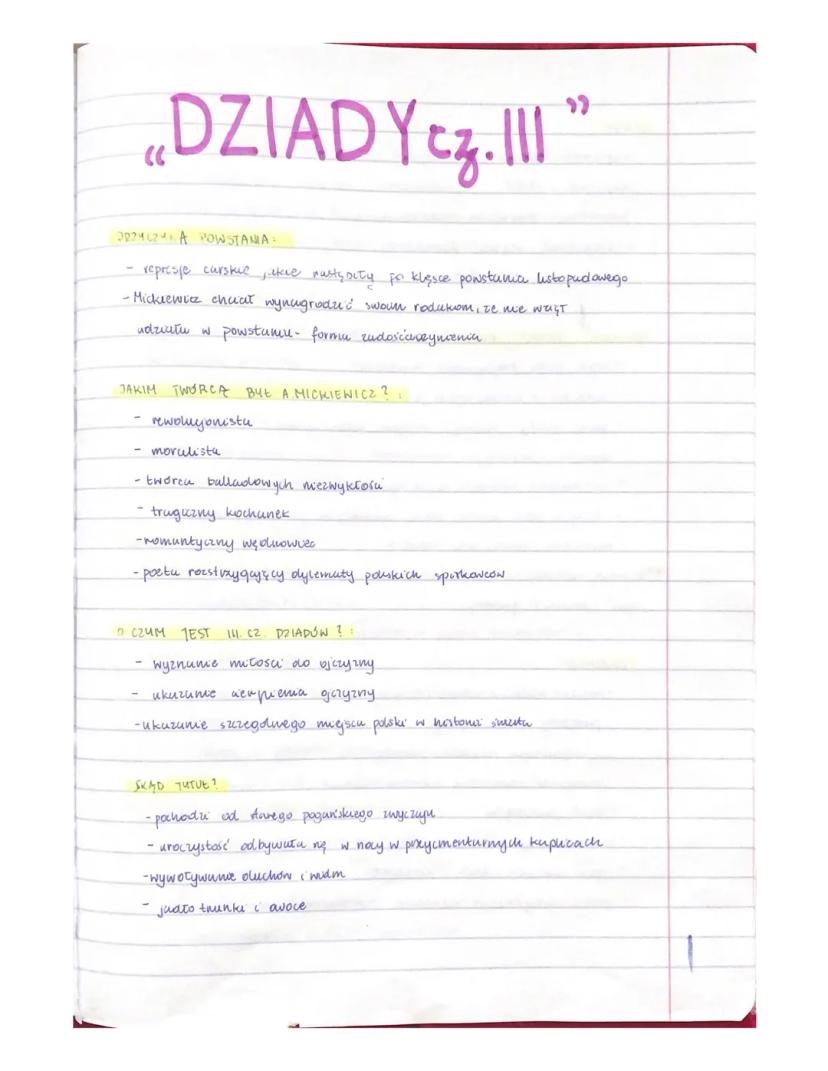 „DZIADY cz. III"
PRZYCZYNA POWSTANIA:
- represje carskie, jakie nastąpiły po klęsce powstania listopadowego
- Mickiewicz chciał wynagrodzić swoim rodakom, że nie wziął
udziału w powstaniu - forma zadośćuczynienia
JAKIM TWÓRCĄ BYŁ A. MICKIEWICZ?:
- rewolucjonista
- moralista
- twórca balladowych niezwykłości
- tragiczny kochanek
- romantyczny wędrowiec
- poeta rozstrzygający dylematy polskich spiskowców
O CZYM JEST III. CZ. DZIADÓW?:
- wyznanie miłości do ojczyzny
- ukazanie cierpienia ojczyzny
- ukazanie szczególnego miejsca polski w historii świata
SKĄD TYTUŁ?
- pochodzi od starego pogańskiego zwyczaju
- uroczystość odbywała się w nocy w przycmentarnych kaplicach
- wywoływanie duchów i widm
- jadło trunki i owoce
1